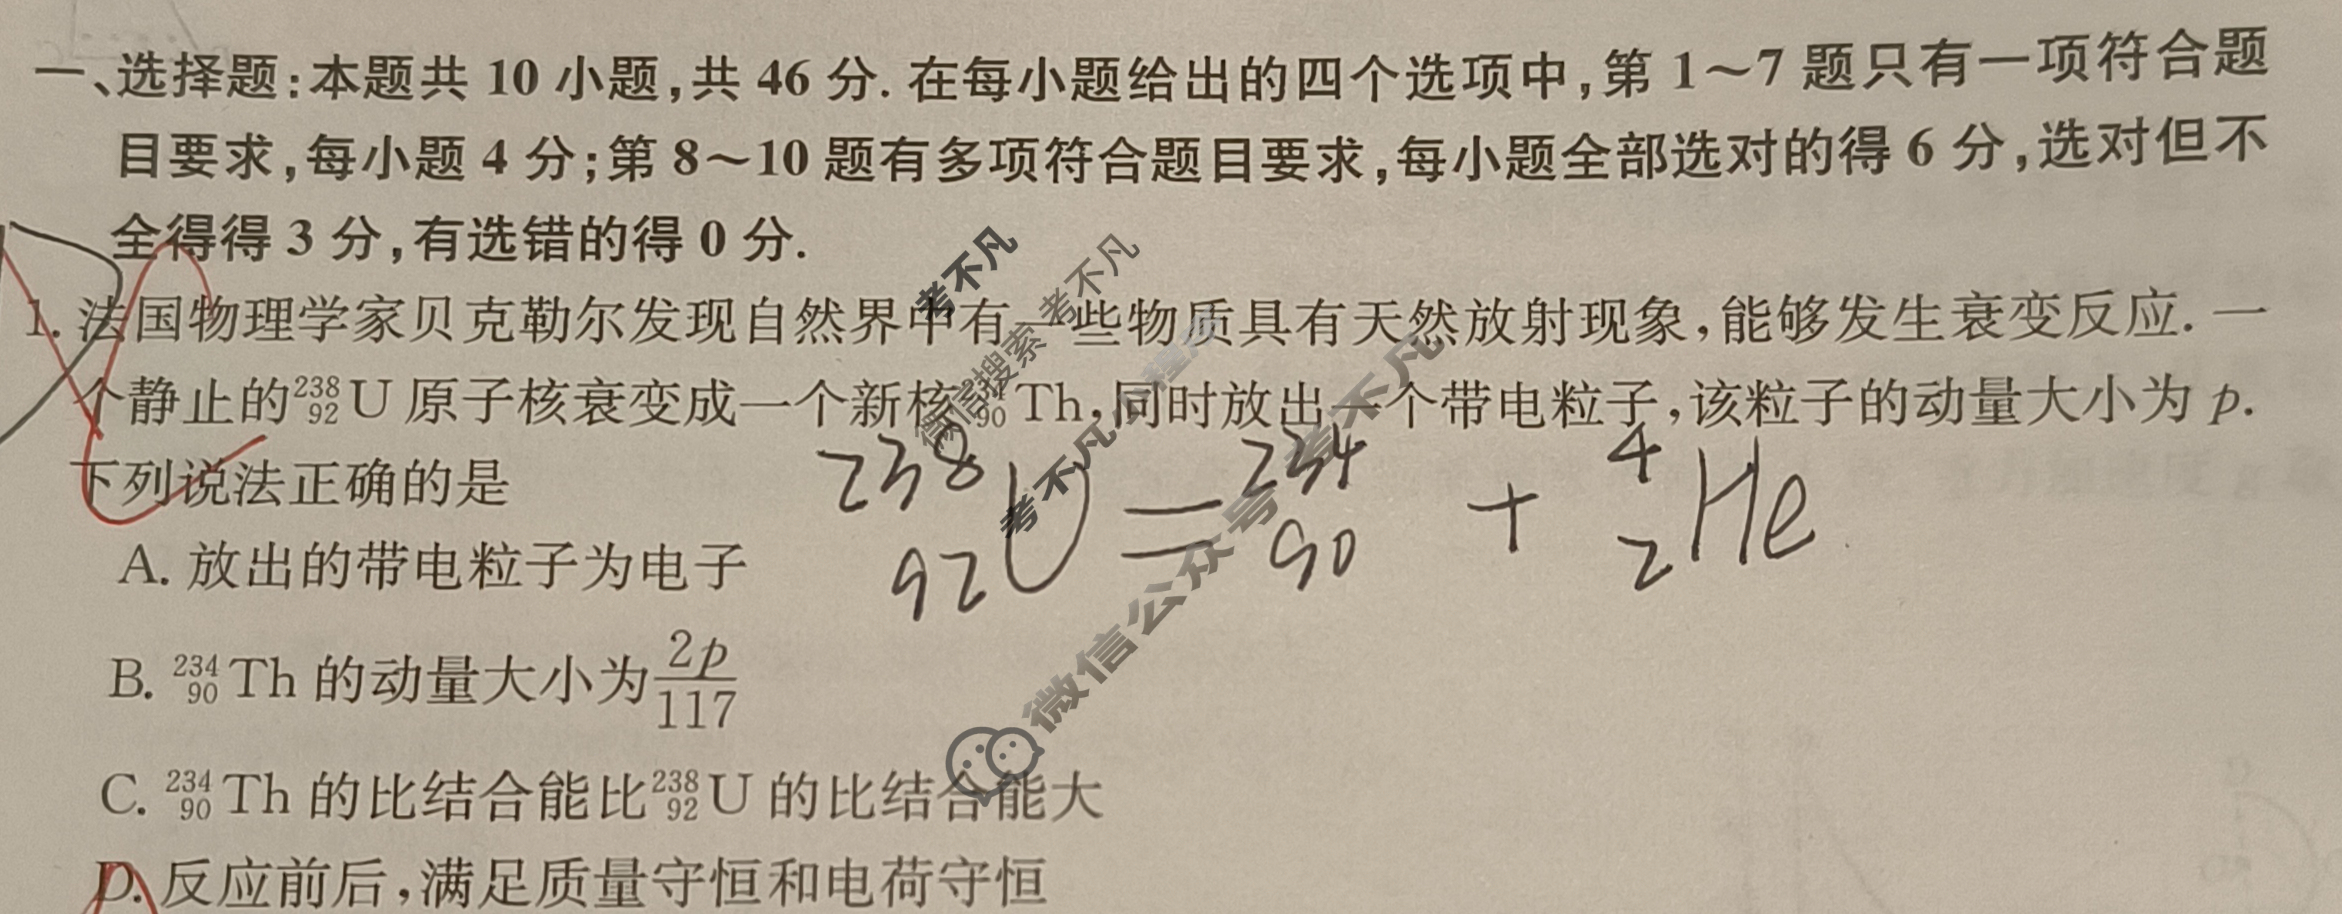 一、选择题:本题共 10 小题,共 46 分. 在每小题给出的四个选项中,第 1～7 题只有一项符合题
目要求,每小题 4 分;第 8～10 题有多项符合题目要求,每小题全部选对的得 6 分,选对但不
全得得 3 分,有选错的得 0 分.
1. 法国物理学家贝克勒尔发现自然界中有一些物质具有天然放射现象,能够发生衰变反应. 一
个静止的²³⁸₉₂U 原子核衰变成一个新核²³⁴₉₀Th,同时放出一个带电粒子,该粒子的动量大小为 p.
下列说法正确的是
²³⁸₉₂U = ²³⁴₉₀ + ⁴₂He
A. 放出的带电粒子为电子
B. ²³⁴₉₀Th 的动量大小为 2p/117
C. ²³⁴₉₀Th 的比结合能比²³⁸₉₂U 的比结合能大
D. 反应前后,满足质量守恒和电荷守恒
考不凡
微信搜索 考不凡
考不凡 小程序
微信公众号 考不凡